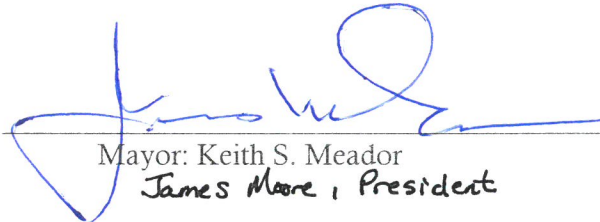 Mayor: Keith S. Meador
James Moore, President